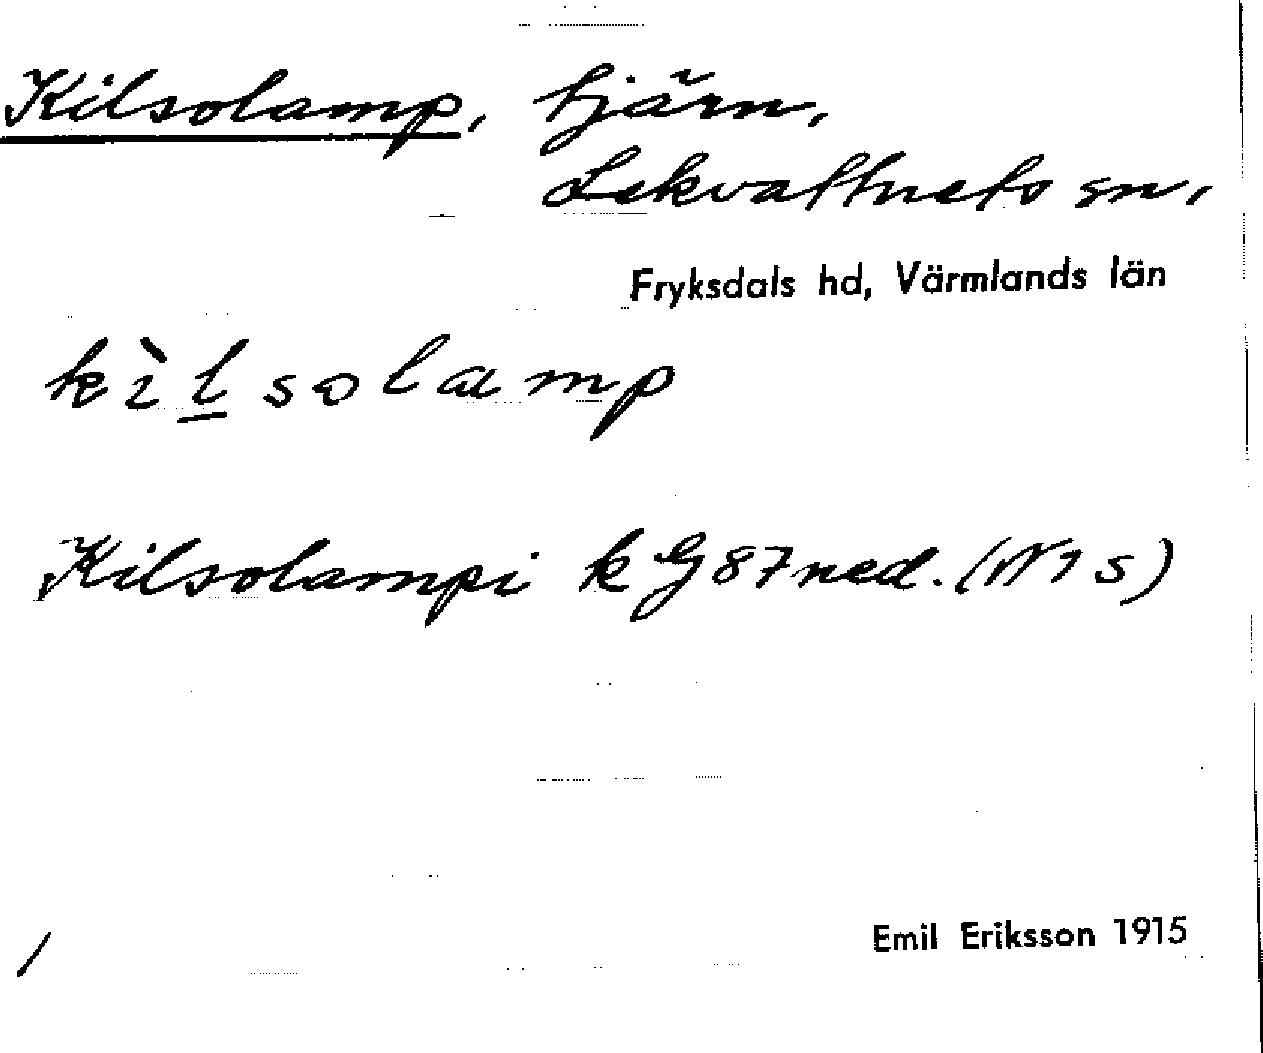 Kilsolamp, tjärn,
Lekvattnets sn,
Fryksdals hd, Värmlands län
kìlsolamp
Kilsolampi k G 87 ned. (N 1 s)
/
Emil Eriksson 1915